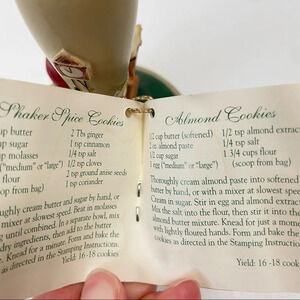 Shaker Spice Cookies
up butter 2 Tbs ginger
up sugar 1 tsp cinnamon
up molasses 1/4 tsp salt
("medium" or "large") 1/2 tsp cloves
flour 2 tsp ground anise seeds
scoop from bag) 1 tsp coriander
roughly cream butter and sugar by hand, or
mixer at slowest speed. Beat in molasses
g until combined. In a separate bowl, mix
dry ingredients, then add to the butter
re. Knead for a minute. Form and bake the
as directed in the Stamping Instructions.
Yield: 16-18 cook
Almond Cookies
1/2 cup butter (softened) 1/2 tsp almond extrac
2 oz almond paste 1/4 tsp salt
1/2 cup sugar 1 3/4 cups flour
1 egg ("medium" or "large") (scoop from bag)
Thoroughly cream almond paste into softened
butter by hand, or with a mixer at slowest spee
Cream in sugar. Stir in egg and almond extract
Mix the salt into the flour, then stir it into the
almond butter mixture. Knead for just a momen
with lightly floured hands. Form and bake the
cookies as directed in the Stamping Instruction
Yield: 16 -18 cook